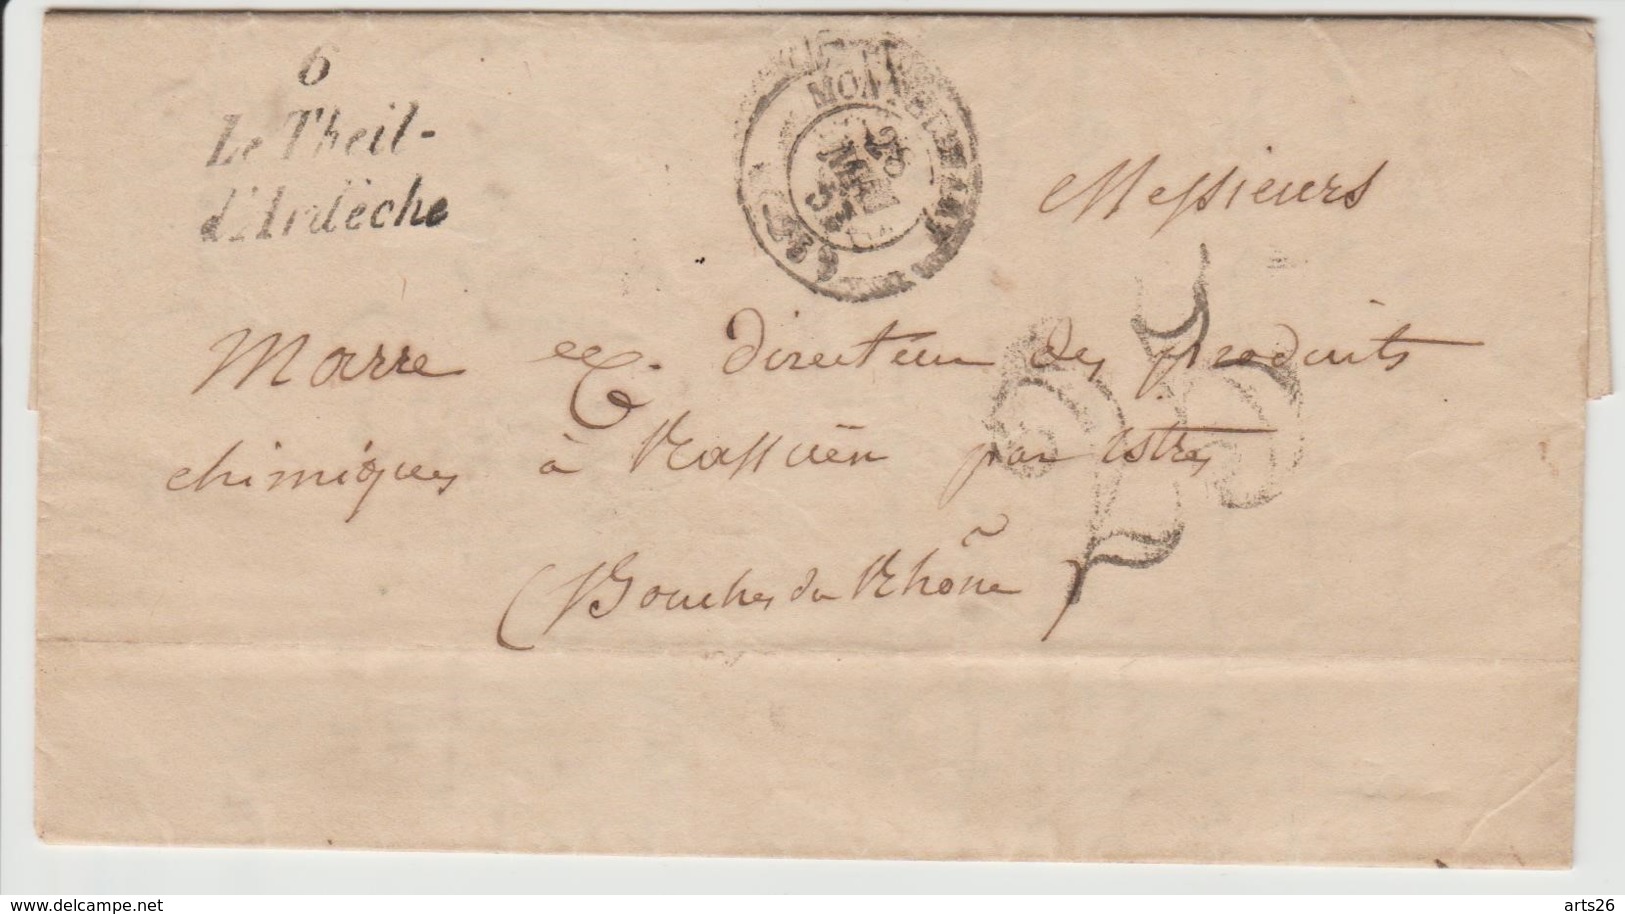 6
Le Theil-
d'Ardèche
MONTELIMART
26
(25)
Messieurs
Marre & C. directeur des produits
chimiques à Rassuën par Istres
(Bouches du Rhône)
25
delcampe.net
arts26